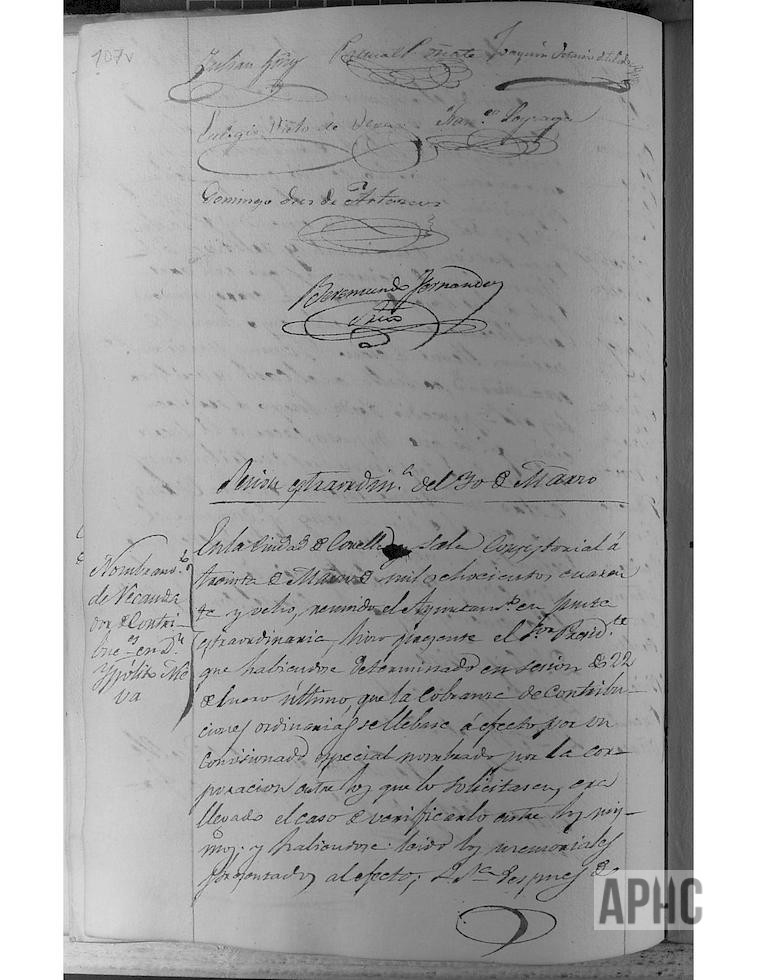 107v
Julian
Pascual Joaquin
de Fran.co
Domingo de
Beremundo Fernandez
Frias
Sesion extraordin.a del 30 de Marzo
Nombram.to
de Recauda
dor de Contri-
bu.es en D.n
Ypólito Nie
va
En la Ciudad de Coralla y Sala Consistorial á
treinta de Marzo de mil ochocientos cuaren
ta y ocho, reunido el Ayuntam.to en junta
extraordinaria, hizo presente el Sor Presid.te
que habiendose determinado en sesion de 22
de Enero ultimo, que la cobranza de contribu-
ciones ordinarias se llebase á efecto por un
comisionado especial nombrado por la cor-
poracion entre los que lo solicitasen, era
llevado el caso de verificarlo entre los mis-
mos: y habiendose leido los memoriales
presentados al efecto, despues de
APHC